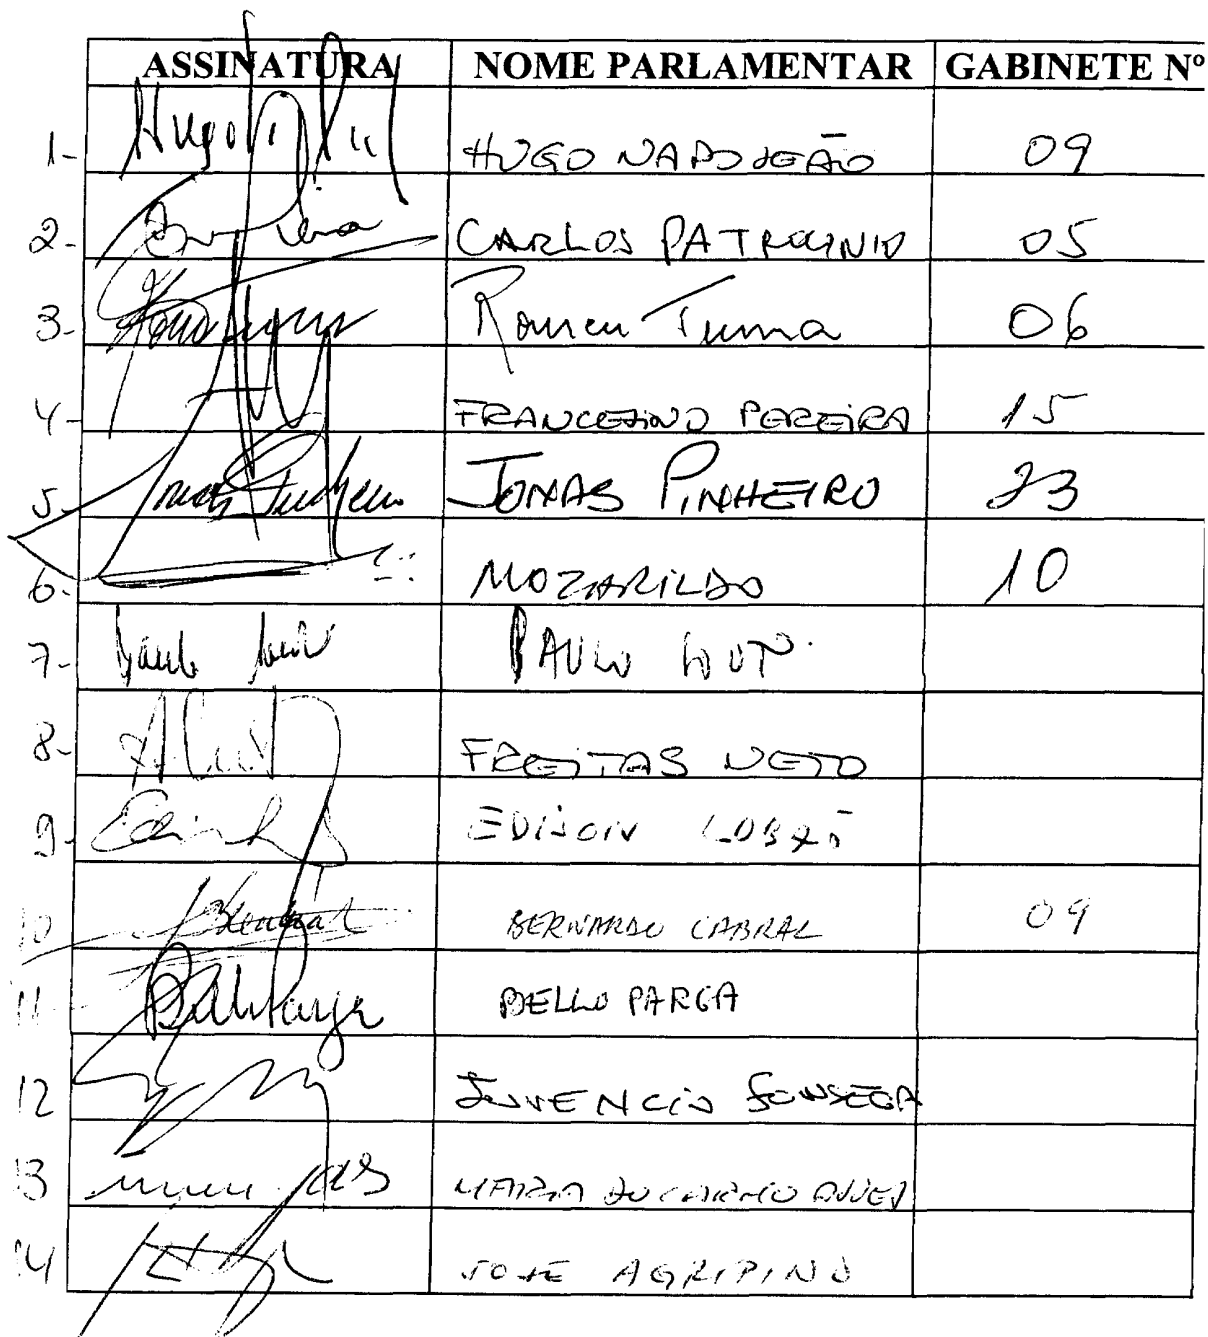 ASSINATURA NOME PARLAMENTAR GABINETE Nº
1- HUGO NAPOLEÃO 09
2- CARLOS PATROCINIO 05
3- Romeu Tuma 06
4- FRANCELINO PEREIRA 15
5- Jonas Pinheiro JONAS PINHEIRO 23
6- MOZARILDO 10
7- PAULO
8- FREITAS NETO
9- EDISON LOBÃO
10 BERNARDO CABRAL 09
11 Bello Parga BELLO PARGA
12 JUVENCIO FONSECA
13 MARIA DO CARMO ALVES
14 JOSE AGRIPINO